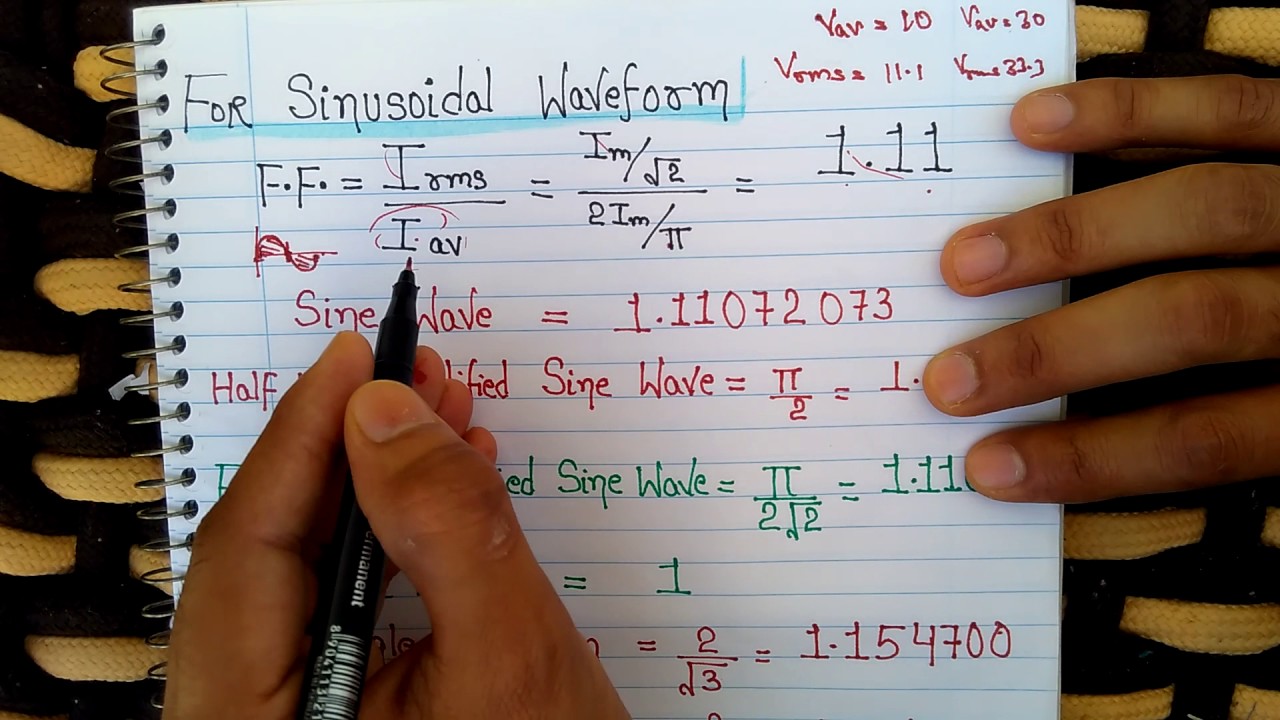 Vav = 10 Vav = 30
Vrms = 11.1 Vrms 33.3
FOR Sinusoidal Waveform
F.F. = Irms / Iav = Im/√2 / 2Im/π = 1.11
Sine Wave = 1.11072073
Half Sine Wave = π/2 = 1.
Sine Wave = π/2√2 = 1.11
= 1
= 2/√3 = 1.154700
permanent